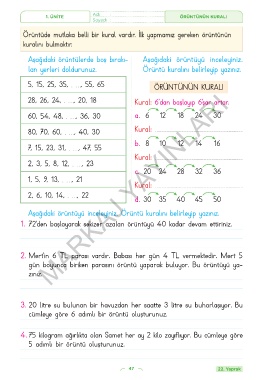 1. ÜNİTE
Adı:
Soyadı:
ÖRÜNTÜNÜN KURALI
Örüntüde mutlaka belli bir kural vardır. İlk yapmamız gereken örüntünün
kuralını bulmaktır.
Aşağıdaki örüntülerde boş bırakı-
lan yerleri doldurunuz.
5, 15, 25, 35, . . ., 55, 65
28, 26, 24, . . ., 20, 18
60, 54, 48, . . ., 36, 30
80, 70, 60, . . ., 40, 30
7, 15, 23, 31, . . ., 47, 55
2, 3, 5, 8, 12, . . ., 23
1, 5, 9, 13, . . ., 21
2, 6, 10, 14, . . ., 22
Aşağıdaki örüntüyü inceleyiniz.
Örüntü kuralını belirleyip yazınız.
ÖRÜNTÜNÜN KURALI
Kural: 6'dan başlayıp 6'şar artar.
a. 6 12 18 24 30
Kural:
b. 8 10 12 14 16
Kural:
c. 20 24 28 32 36
Kural:
d. 30 35 40 45 50
Aşağıdaki örüntüyü inceleyiniz. Örüntü kuralını belirleyip yazınız.
1. 72'den başlayarak sekizer azalan örüntüyü 40 kadar devam ettiriniz.
2. Mert'in 6 TL parası vardır. Babası her gün 4 TL vermektedir. Mert 5
gün boyunca biriken parasını örüntü yaparak buluyor. Bu örüntüyü ya-
zınız.
3. 20 litre su bulunan bir havuzdan her saatte 3 litre su buharlaşıyor. Bu
cümleye göre 6 adımlı bir örüntü oluşturunuz.
4. 75 kilogram ağırlıkta olan Samet her ay 2 kilo zayıflıyor. Bu cümleye göre
5 adımlı bir örüntü oluşturunuz.
47
22. Yaprak